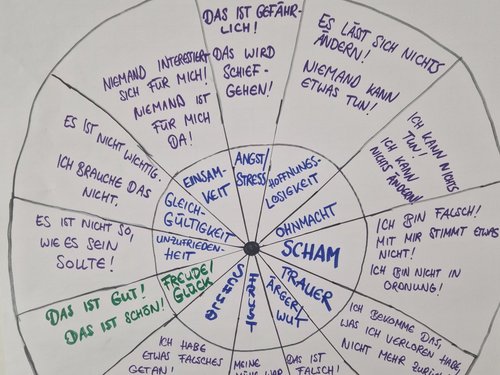 DAS IST GEFÄHR-
LICH!
DAS WIRD
SCHIEF-
GEHEN!
ES LÄST SICH NICHTS
ÄNDERN!
NIEMAND KANN
ETWAS TUN!
ICH KANN NICHTS
TUN!
ICH KANN
NICHTS ÄNDERN!
ICH BIN FALSCH!
MIT MIR STIMMT ETWAS
NICHT!
ICH BIN NICHT IN
ORDNUNG!
ICH BEKOMME DAS,
WAS ICH VERLOREN HABE,
NICHT MEHR ZURÜCK
DAS IST
FALSCH!
MEINE
MÜHE WAR
ICH HABE
ETWAS FALSCHES
GETAN!
DAS IST GUT!
DAS IST SCHÖN!
ES IST NICHT SO,
WIE ES SEIN
SOLLTE!
ES IST NICHT WICHTIG.
ICH BRAUCHE DAS
NICHT.
NIEMAND INTERESSIERT
SICH FÜR MICH!
NIEMAND IST
FÜR MICH
DA!
ANGST/
STRESS
HOFFNUNGS-
LOSIGKEIT
OHNMACHT
SCHAM
TRAUER
ÄRGER/
WUT
FRUST
SCHULD
FREUDE/
GLÜCK
UNZUFRIEDEN-
HEIT
GLEICH-
GÜLTIGKEIT
EINSAM-
KEIT